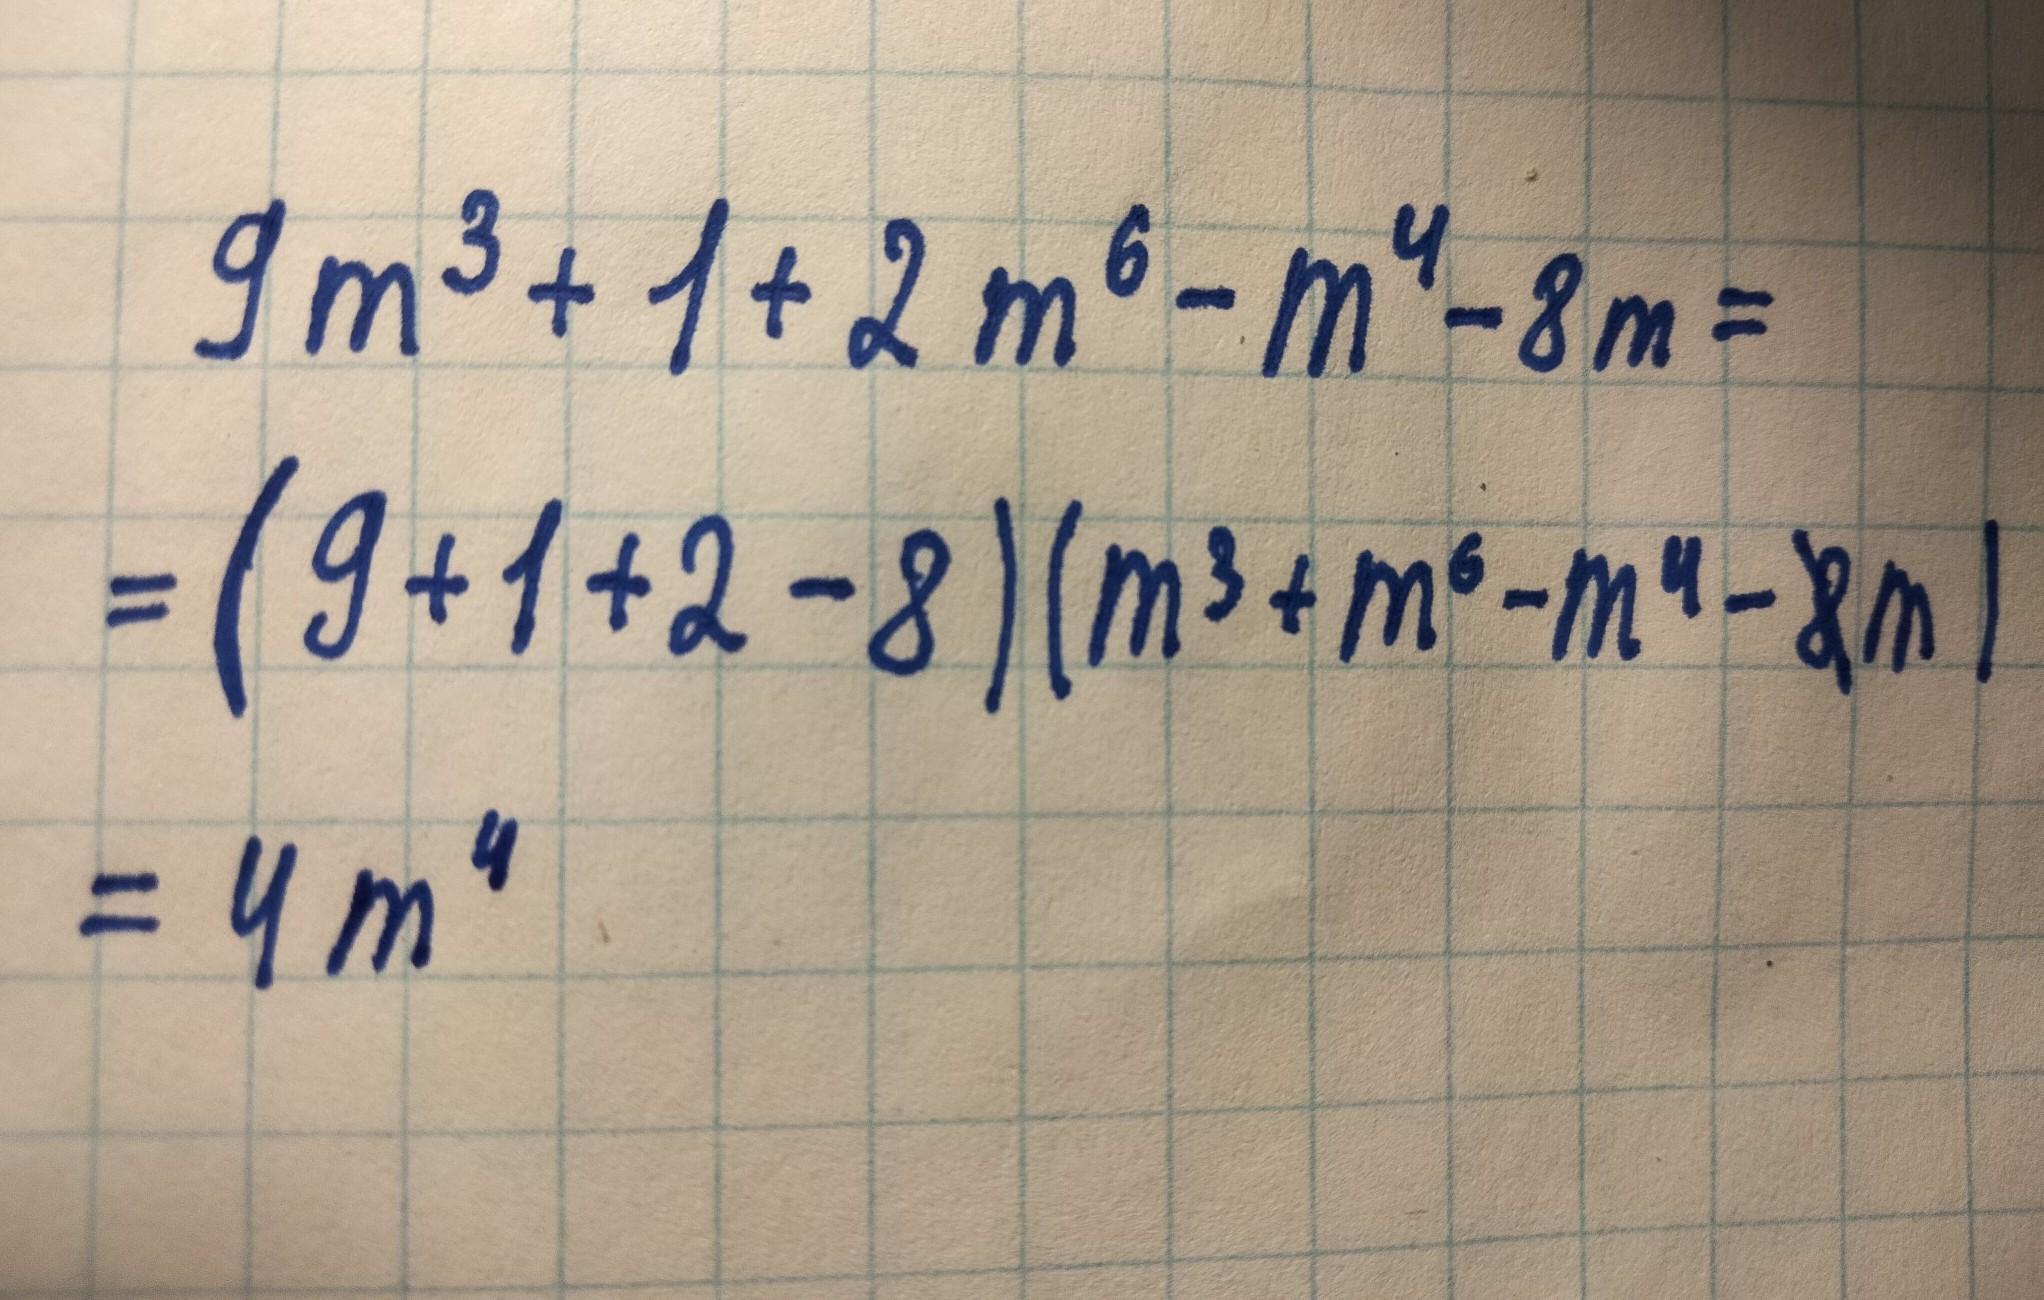 9m³ + 1 + 2m⁶ - m⁴ - 8m =
= (9 + 1 + 2 - 8)(m³ + m⁶ - m⁴ - m)
= 4m⁴